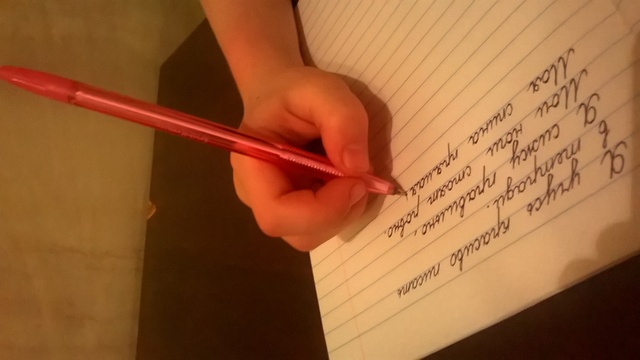 Я учусь красиво писать
в тетради.
Я сижу правильно,
Мои ноги стоят ровно.
Моя спина прямая